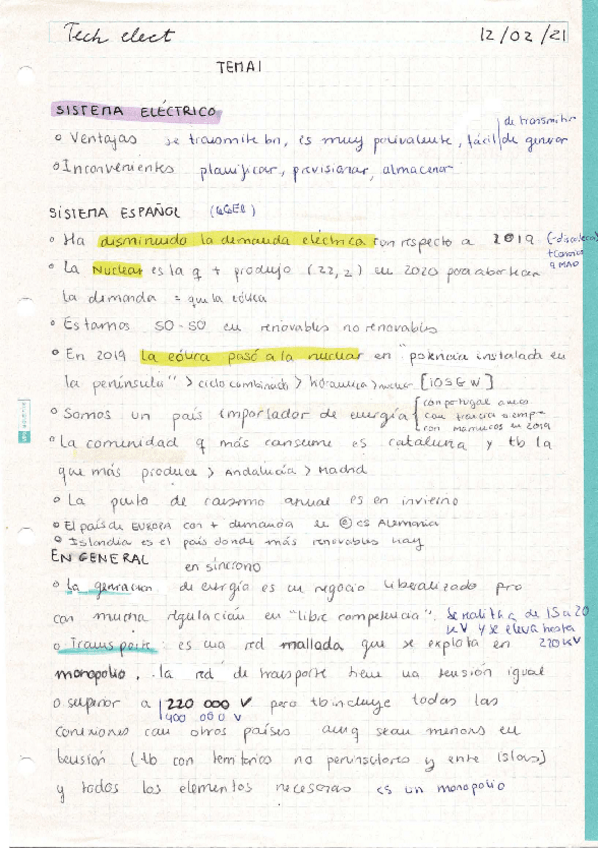 Tech elect 12/02/21
TEMA 1
SISTEMA ELÉCTRICO
º Ventajas se transmite bn, es muy polivalente, fácil de transmitir
de generar
º Inconvenientes planificar, previsionar, almacenar
SISTEMA ESPAÑOL
º Ha disminuido la demanda eléctrica con respecto a 2019
º La Nuclear es la q + produjo (22,2) en 2020 para abastecer
la demanda = que la eólica
º Estamos SO-SO en renovables no renovables
º En 2019 la eólica pasó a la nuclear en "potencia instalada en
la península" > ciclo combinado > hidraulica > nuclear [105GW]
º Somos un país importador de energía con portugal a veces
con francia siempre
con marruecos en 2019
º La comunidad q más consume es cataluña y tb la
que más produce > Andalucía > Madrid
º La punta de consumo anual es en invierno
º El país de EUROPA con + demanda de e es Alemania
º Islandia es el país donde más renovables hay
EN GENERAL
en síncrono
º La generacion de energía es un negocio liberalizado pero
con mucha regulación en "libre competencia". Se realiza de 15 a 20
kV y se eleva hasta
220 kV
º Transporte: es una red mallada que se explota en
monopolio. la red de transporte tiene una tensión igual
o superior a 220 000 V pero tb incluye todas las
400 000 V
conexiones con otros países aunq sean menores en
tensión (tb con territorios no peninsulares y entre islas)
y todos los elementos necesarios es un monopolio